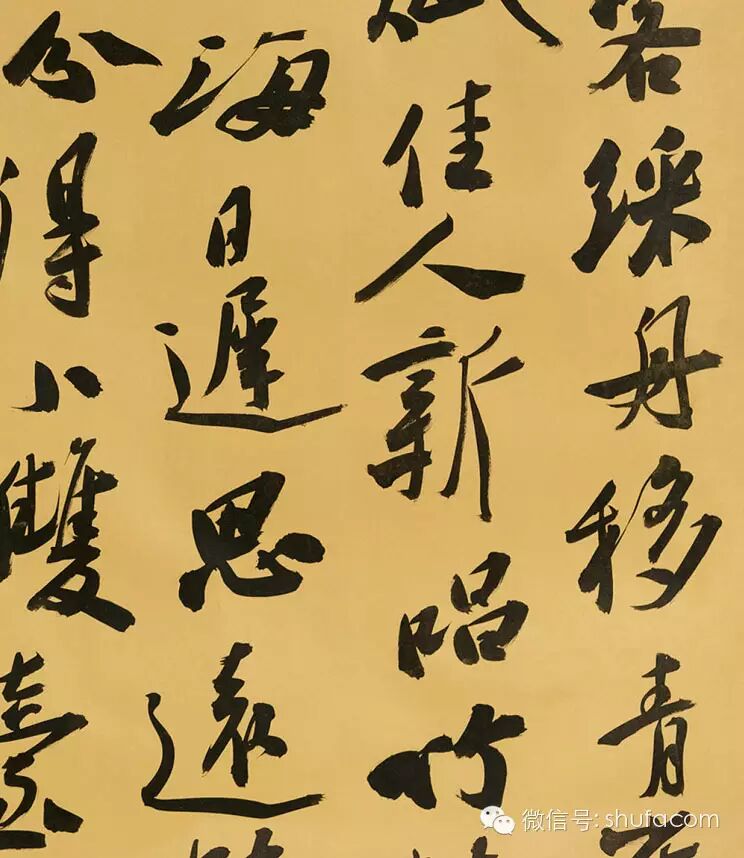 綵舟移青
佳人新唱竹
海日遲思遠
分得八雙臺
微信号: shufacom